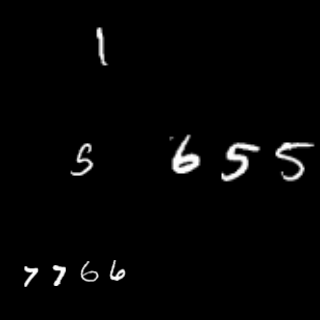 1
5 655
7766